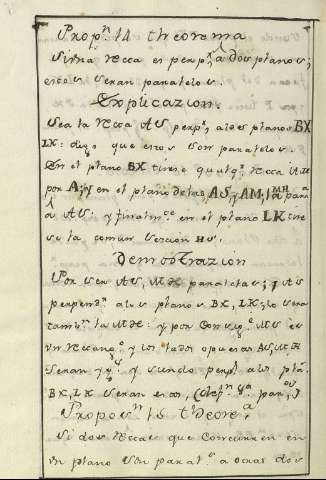 Propn. 14 theorema
Si una recta es perpr. a dos planos;
estos seran paralelos.
Explicazion.
Sea la recta AS perpr. alos planos BX
LK: digo que estos son paralelos.
En el plano BX tirese qualqa. recta AM
por A; y en el plano delas AS, y AM, la MH para
a AS: y finalmte. en el plano LK tire
se la comun seccion HS.
Demostrazion
Por ser AS, MH paralelas; y AS
perpendr. alos planos BX, LK; lo sera
tambn. la MH: y por consige. MS es
un Rectango. y los lados opuestos AS, MH
seran ygs. y siendo perpr. alos plas.
BX, LK seran estos, paros.)
Proposn. 15 theorea.
Si dos rectas que concurren en
un plano son paralas. a otras dos